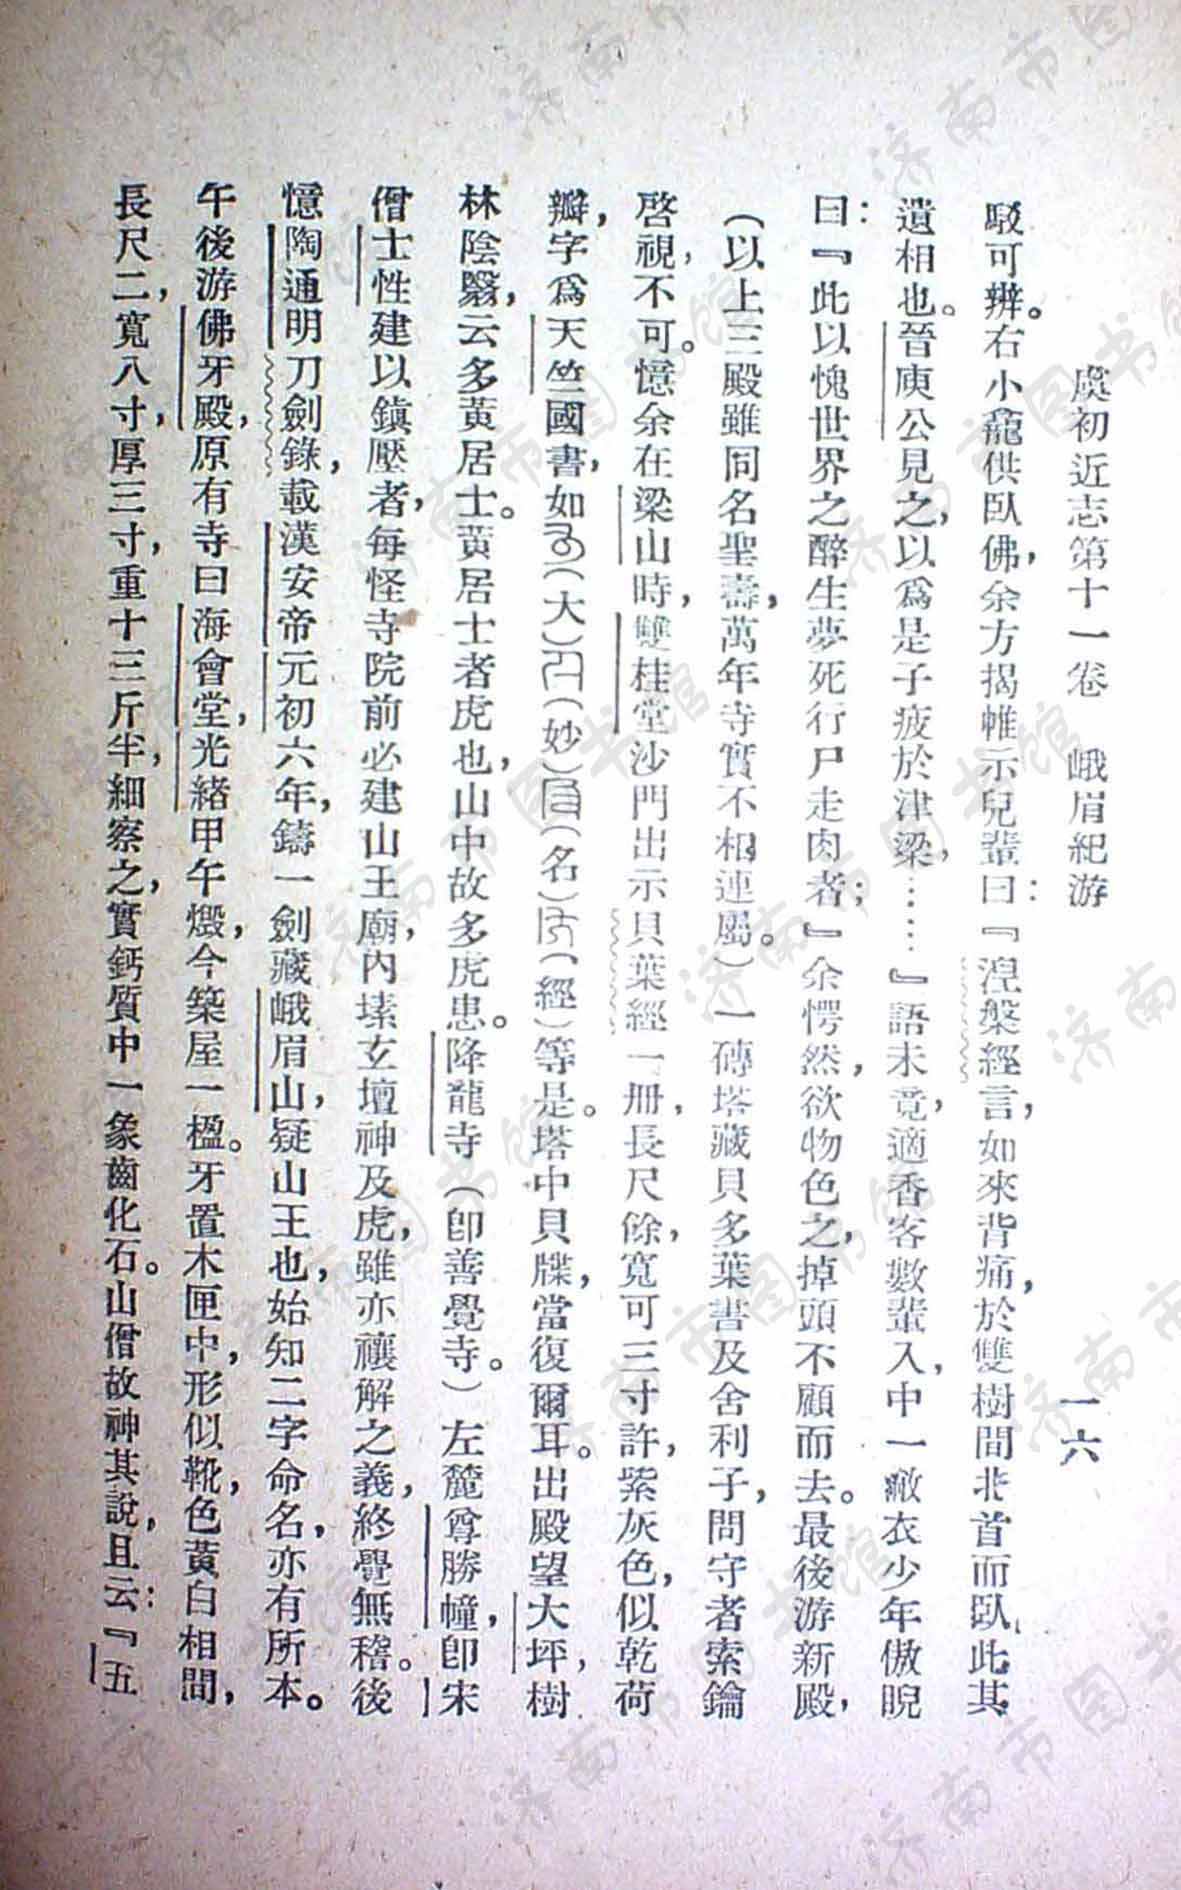 虞初近志第十一卷　峨眉紀游　一六
駁可辨。右小龕供臥佛，余方揭帷示兒輩曰：『湼槃經言，如來背痛，於雙樹間北首而臥，此其
遺相也。晉庾公見之，以爲是子疲於津梁，……』語未竟，適香客數輩入，中一敝衣少年傲睨
曰：『此以愧世界之醉生夢死行尸走肉者；』余愕然，欲物色之，掉頭不顧而去。最後游新殿，
（以上三殿雖同名聖壽，萬年寺實不相連屬。）一磚塔藏貝多葉書及舍利子，問守者索鑰
啓視，不可。憶余在梁山時，雙桂堂沙門出示貝葉經一册，長尺餘，寬可三寸許，紫灰色，似乾荷
瓣，字爲天竺國書，如（大）（妙）（名）（經）等是。塔中貝牒，當復爾耳。出殿望大坪，樹
林陰翳，云多黃居士。黃居士者虎也，山中故多虎患。降龍寺（卽善覺寺。）左麓尊勝幢，卽宋
僧士性建以鎮壓者，每怪寺院前必建山王廟，內塑玄壇神及虎，雖亦禳解之義，終覺無稽。後
憶陶通明刀劍錄，載漢安帝元初六年，鑄一劍藏峨眉山，疑山王也，始知二字命名，亦有所本。
午後游佛牙殿，原有寺曰海會堂，光緒甲午燬，今築屋一楹。牙置木匣中，形似靴，色黃白相間，
長尺二，寬八寸，厚三寸，重十三斤半，細察之，實鈣質中一象齒化石。山僧故神其說，且云：『五